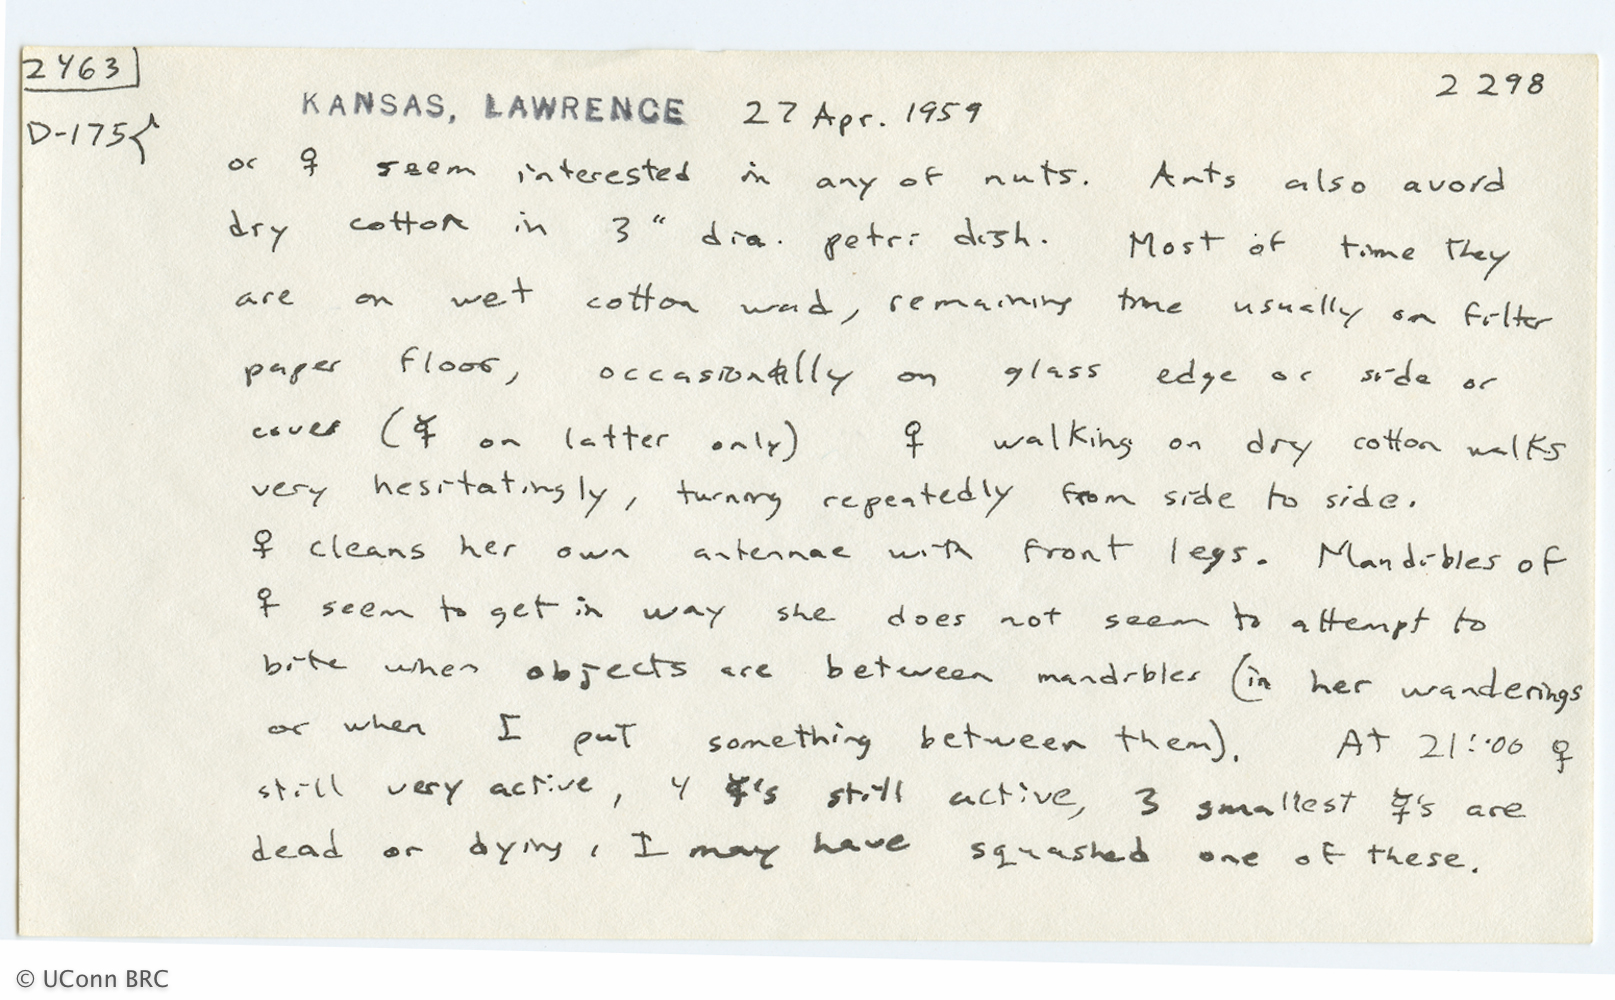 2463
2298
KANSAS, LAWRENCE 27 Apr. 1959
D-175{
or ♀ seem interested in any of nuts. Ants also avoid
dry cotton in 3" dia. petri dish. Most of time they
are on wet cotton wad, remaining time usually on filter
paper floor, occasionally on glass edge or side or
cover (☿ on latter only) ♀ walking on dry cotton walks
very hesitatingly, turning repeatedly from side to side.
♀ cleans her own antennae with front legs. Mandibles of
♀ seem to get in way she does not seem to attempt to
bite when objects are between mandibles (in her wanderings
or when I put something between them). At 21:00 ♀
still very active, 4 ☿'s still active, 3 smallest ☿'s are
dead or dying, I may have squashed one of these.
© UConn BRC